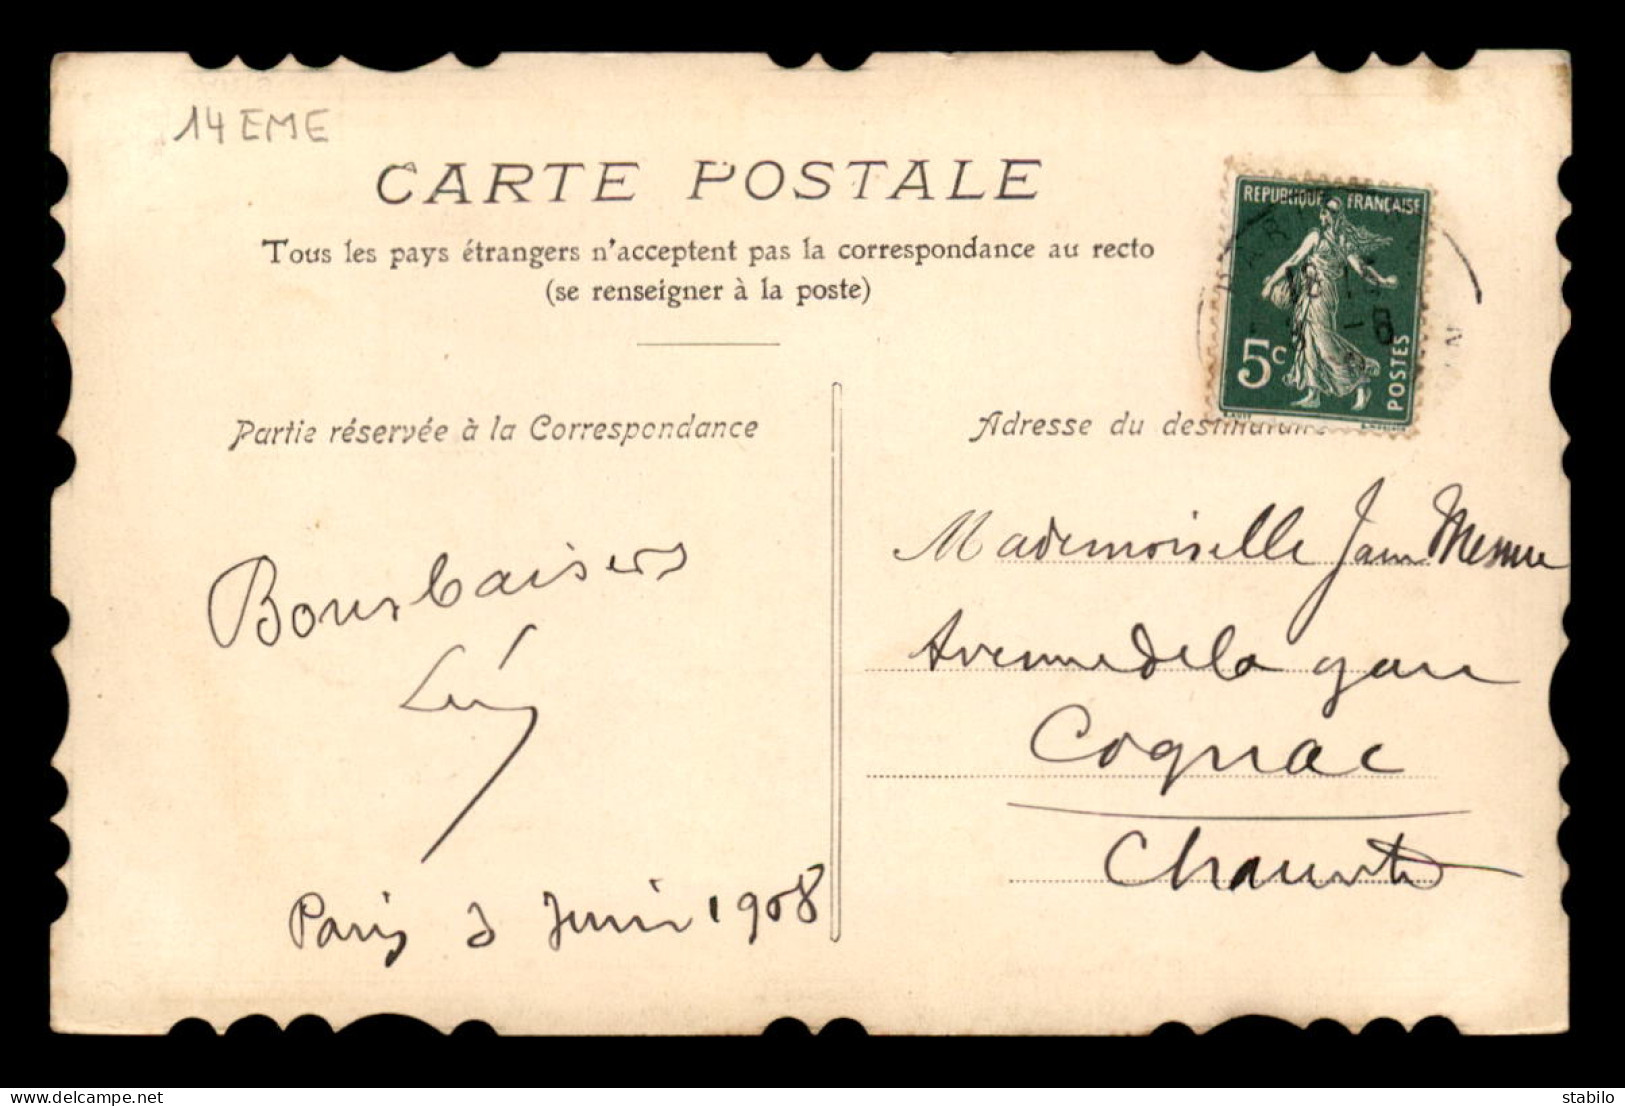 14 EME
CARTE POSTALE
Tous les pays étrangers n'acceptent pas la correspondance au recto
(se renseigner à la poste)
REPUBLIQUE FRANÇAISE
5c
POSTES
Partie réservée à la Correspondance
Adresse du destinataire
Bons baisers
Paris 3 Juin 1908
Mademoiselle
Avenue de la gare
Cognac
Charente
delcampe.net
stabilo